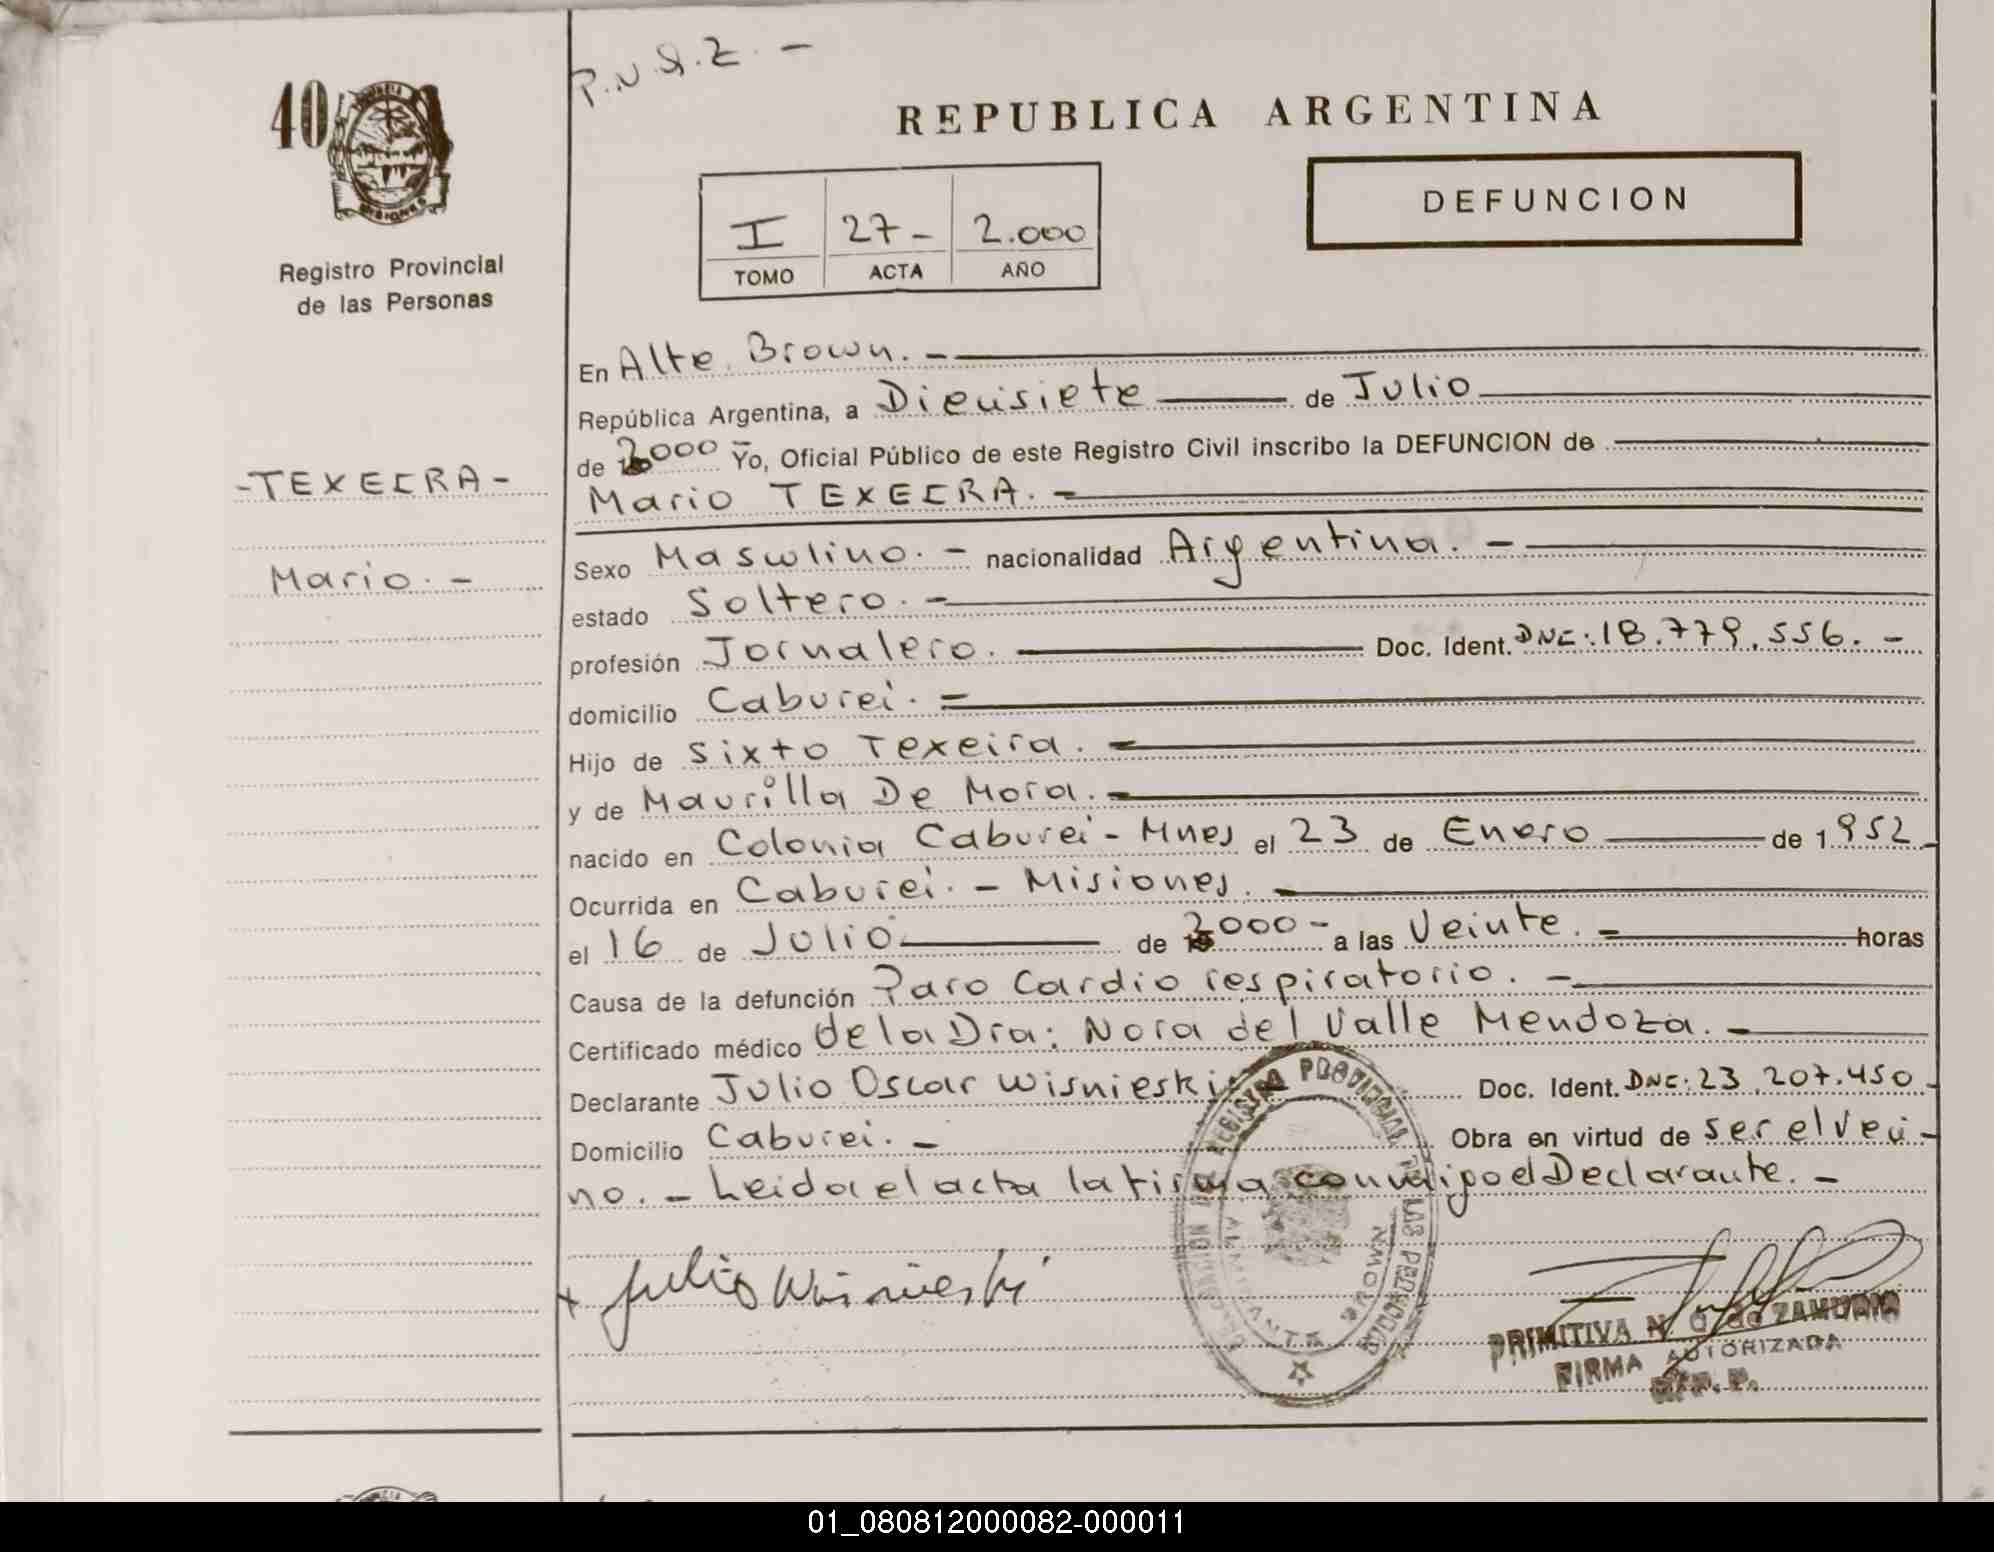 P.N.Q.Z. -
40
REPUBLICA ARGENTINA
DEFUNCION
I 27- 2.000
TOMO ACTA AÑO
Registro Provincial
de las Personas
-TEXEIRA-
Mario. -
En Alte. Brown. -
República Argentina, a Diecisiete de Julio
de 2000 - Yo, Oficial Público de este Registro Civil inscribo la DEFUNCION de
Mario TEXEIRA. -
Sexo Masculino. - nacionalidad Argentina. -
estado Soltero. -
profesión Jornalero. Doc. Ident. DNI: 18.779.556. -
domicilio Caburei. -
Hijo de Sixto Texeira. -
y de Maurilla De Mora. -
nacido en Colonia Caburei - Mnes el 23 de Enero de 1952 -
Ocurrida en Caburei. - Misiones. -
el 16 de Julio de 2000 - a las Veinte. - horas
Causa de la defunción Paro Cardio respiratorio. -
Certificado médico de la Dra: Nora del Valle Mendoza. -
Declarante Julio Oscar Wisnieski Doc. Ident. DNI: 23.207.450 -
Domicilio Caburei. - Obra en virtud de ser el veci-
no. - Leida el acta la firma conmigo el Declarante. -
REGISTRO PROVINCIAL DE LAS PERSONAS
ALMIRANTE BROWN
x Julio Wisnieski
PRIMITIVA N. G. de ZAMUDIO
FIRMA AUTORIZADA
01_080812000082-000011